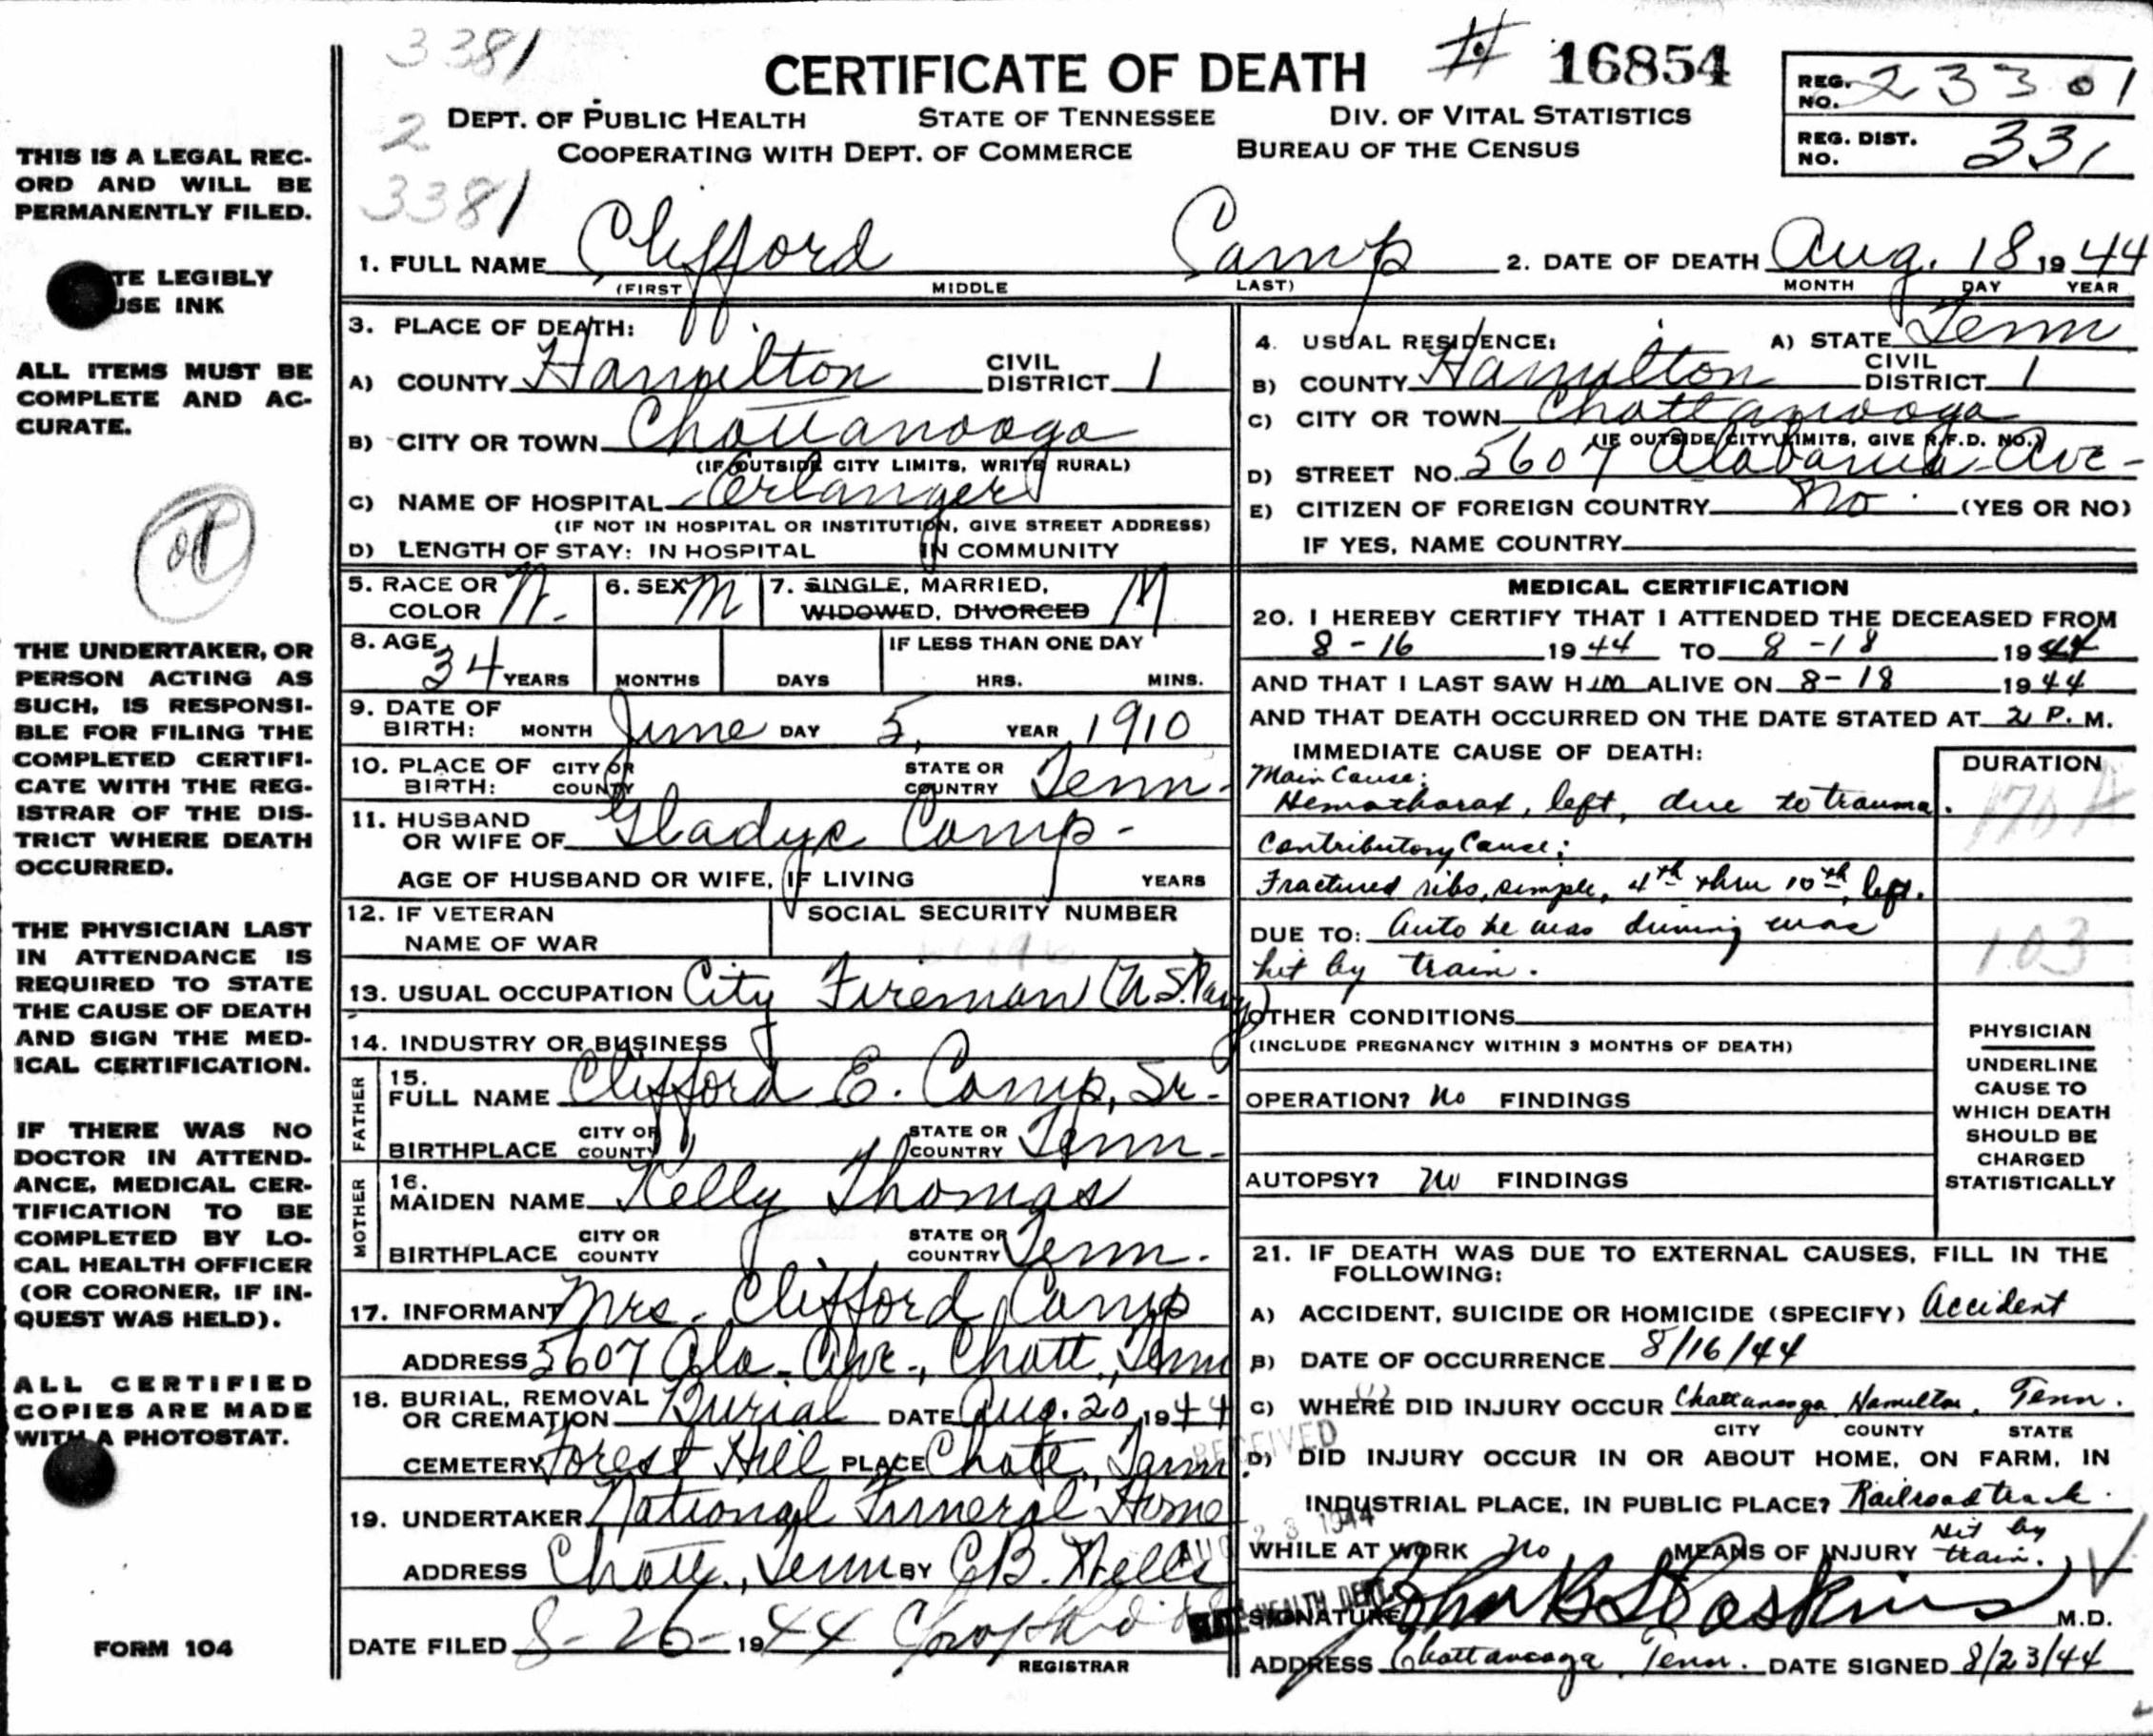 3381
CERTIFICATE OF DEATH # 16854
REG. NO. 23301
DEPT. OF PUBLIC HEALTH STATE OF TENNESSEE DIV. OF VITAL STATISTICS
2
COOPERATING WITH DEPT. OF COMMERCE BUREAU OF THE CENSUS
REG. DIST. NO. 331
3381
1. FULL NAME Clifford Camp 2. DATE OF DEATH Aug. 18 1944
(FIRST MIDDLE LAST) MONTH DAY YEAR
THIS IS A LEGAL REC-
ORD AND WILL BE
PERMANENTLY FILED.
TE LEGIBLY
USE INK
ALL ITEMS MUST BE
COMPLETE AND AC-
CURATE.
THE UNDERTAKER, OR
PERSON ACTING AS
SUCH, IS RESPONSI-
BLE FOR FILING THE
COMPLETED CERTIFI-
CATE WITH THE REG-
ISTRAR OF THE DIS-
TRICT WHERE DEATH
OCCURRED.
THE PHYSICIAN LAST
IN ATTENDANCE IS
REQUIRED TO STATE
THE CAUSE OF DEATH
AND SIGN THE MED-
ICAL CERTIFICATION.
IF THERE WAS NO
DOCTOR IN ATTEND-
ANCE, MEDICAL CER-
TIFICATION TO BE
COMPLETED BY LO-
CAL HEALTH OFFICER
(OR CORONER, IF IN-
QUEST WAS HELD).
ALL CERTIFIED
COPIES ARE MADE
WITH A PHOTOSTAT.
FORM 104
3. PLACE OF DEATH:
A) COUNTY Hamilton CIVIL DISTRICT 1
B) CITY OR TOWN Chattanooga
(IF OUTSIDE CITY LIMITS, WRITE RURAL)
C) NAME OF HOSPITAL Erlanger
(IF NOT IN HOSPITAL OR INSTITUTION, GIVE STREET ADDRESS)
D) LENGTH OF STAY: IN HOSPITAL IN COMMUNITY
5. RACE OR COLOR W. 6. SEX M 7. SINGLE, MARRIED,
WIDOWED, DIVORCED M
8. AGE 34 YEARS MONTHS DAYS IF LESS THAN ONE DAY HRS. MINS.
9. DATE OF BIRTH: MONTH June DAY 5, YEAR 1910
10. PLACE OF BIRTH: CITY OR COUNTY STATE OR COUNTRY Tenn.
11. HUSBAND OR WIFE OF Gladys Camp-
AGE OF HUSBAND OR WIFE, IF LIVING YEARS
12. IF VETERAN SOCIAL SECURITY NUMBER
NAME OF WAR
13. USUAL OCCUPATION City Fireman (U.S. Navy)
14. INDUSTRY OR BUSINESS
FATHER
15. FULL NAME Clifford E. Camp, Sr.
BIRTHPLACE CITY OR COUNTY STATE OR COUNTRY Tenn.
MOTHER
16. MAIDEN NAME Kelly Thomas
BIRTHPLACE CITY OR COUNTY STATE OR COUNTRY Tenn.
17. INFORMANT Mrs. Clifford Camp
ADDRESS 5607 Ala. Ave., Chatt., Tenn
18. BURIAL, REMOVAL OR CREMATION Burial DATE Aug. 20, 1944
CEMETERY Forest Hill PLACE Chatt., Tenn
19. UNDERTAKER National Funeral Home
ADDRESS Chatt., Tenn BY
DATE FILED 8-26-1944
REGISTRAR
4. USUAL RESIDENCE: A) STATE Tenn
B) COUNTY Hamilton CIVIL DISTRICT 1
C) CITY OR TOWN Chattanooga
(IF OUTSIDE CITY LIMITS, GIVE R.F.D. NO.)
D) STREET NO. 5607 Alabama Ave-
E) CITIZEN OF FOREIGN COUNTRY No (YES OR NO)
IF YES, NAME COUNTRY
MEDICAL CERTIFICATION
20. I HEREBY CERTIFY THAT I ATTENDED THE DECEASED FROM
8-16 1944 TO 8-18 1944
AND THAT I LAST SAW HIM ALIVE ON 8-18 1944
AND THAT DEATH OCCURRED ON THE DATE STATED AT 2 P. M.
IMMEDIATE CAUSE OF DEATH: DURATION
Main Cause:
Hemothorax, left, due to trauma. 170 A
Contributory Cause:
Fractured ribs, simple, 4th thru 10th left.
DUE TO: Auto he was driving was 103
hit by train.
OTHER CONDITIONS
(INCLUDE PREGNANCY WITHIN 3 MONTHS OF DEATH)
OPERATION? No FINDINGS
AUTOPSY? No FINDINGS
PHYSICIAN
UNDERLINE
CAUSE TO
WHICH DEATH
SHOULD BE
CHARGED
STATISTICALLY
21. IF DEATH WAS DUE TO EXTERNAL CAUSES, FILL IN THE
FOLLOWING:
A) ACCIDENT, SUICIDE OR HOMICIDE (SPECIFY) Accident
B) DATE OF OCCURRENCE 8/16/44
C) WHERE DID INJURY OCCUR Chattanooga, Hamilton, Tenn.
CITY COUNTY STATE
RECEIVED
D) DID INJURY OCCUR IN OR ABOUT HOME, ON FARM, IN
INDUSTRIAL PLACE, IN PUBLIC PLACE? Railroad track.
AUG 23 1944
WHILE AT WORK no MEANS OF INJURY Hit by train.
HEALTH DEPT.
SIGNATURE M.D.
ADDRESS Chattanooga, Tenn. DATE SIGNED 8/23/44